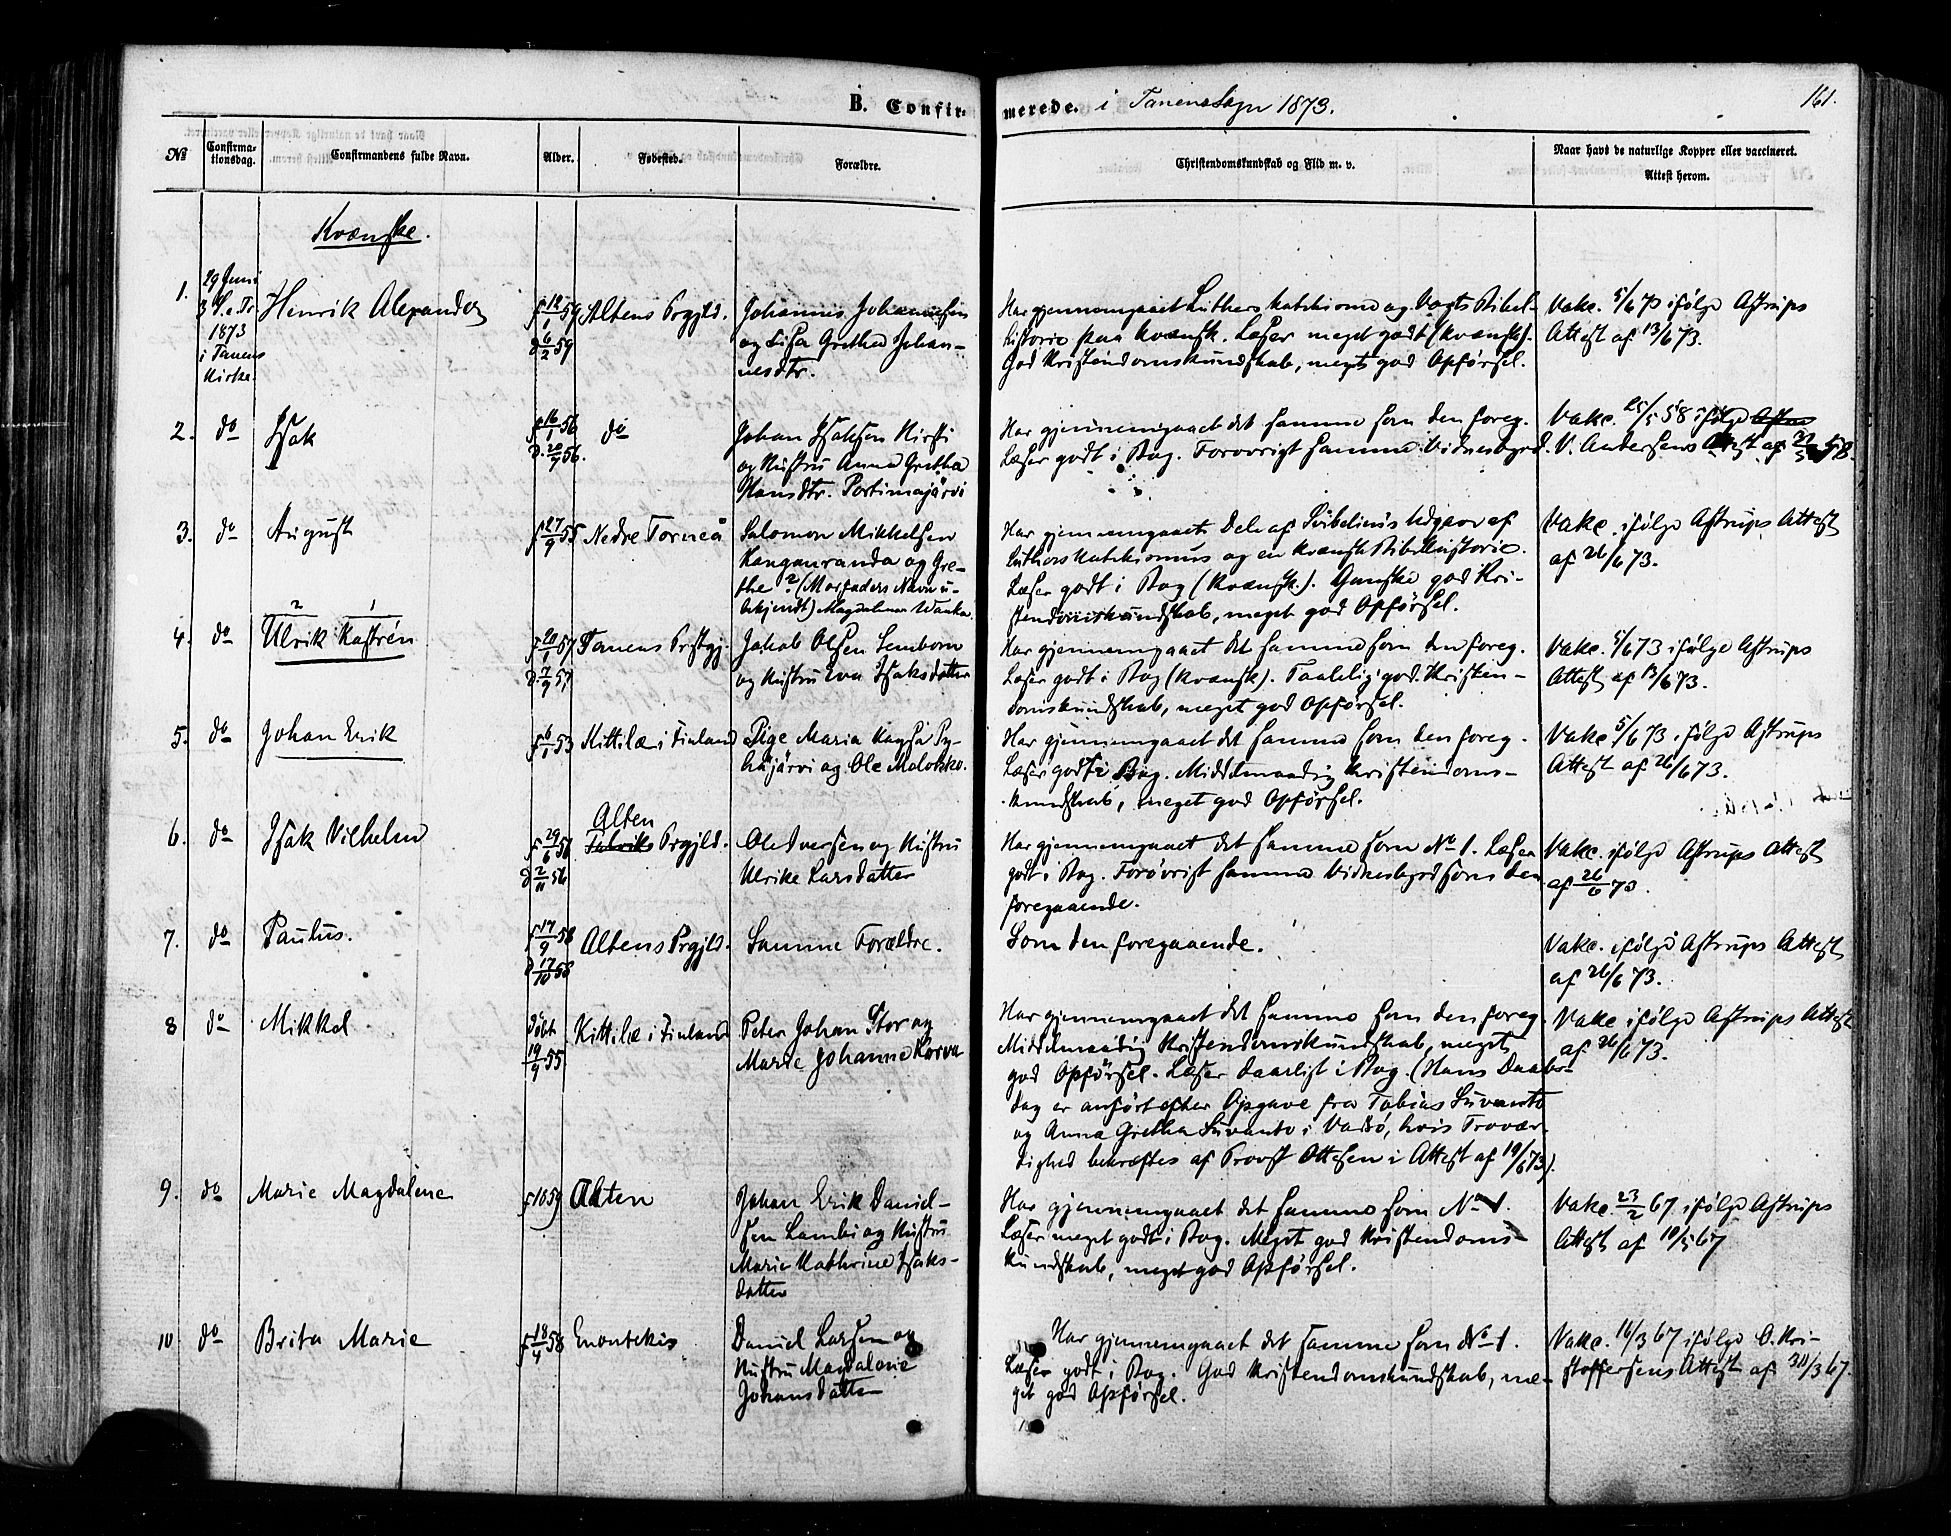 B. Confirmerede. i Tanens Sogn 1873.
161.
№
Confirmationsdag.
Confirmandens fulde Navn.
Alder.
Fødested.
Forældre.
Christendomskundskab og Flid m. v.
Naar havt de naturlige Kopper eller vaccineret.
Attest herom.
Kvænske.
1.
29 Juni
3 S. e. Tr.
1873
i Tanens
Kirke.
Henrik Alexander
f 12/1 59
d 6/2 59
Altens Prgjld.
Johannis Johannesen
og Lisa Gretha Johan-
nesdtr.
Har gjennemgaaet Luthers Katekisme og Vogts Bibel-
historie paa Kvænsk. Læser meget godt (kvænsk).
God Kristendomskundskab, meget god Opførsel.
Vakc. 5/6 73 ifølge Astrups
Attest af 13/6 73.
2.
do
Isak
f 16/1 56
d. 20/9 56.
do
Johan Isaksen Kirsti
og Hustru Anna Gretha
Hansdtr. Portimojärvi
Har gjennemgaaet det samme som den foreg.
Læser godt i Bog. Forøvrigt samme Vidnesbyrd.
Vakc. 25/5 58 ifølge
V. Andersens Attest af 58.
3.
do
August
f 27/9 55
Nedre Torneå
Salomon Mikkelsen
Kangauranda og Gre-
the ? (Morfaders Navn u-
bekjendt) Magdalena Wanka
Har gjennemgaaet Dele af Svibelius Udgave af
Luthers Katekismus og en kvænsk Bibelhistorie.
Læser godt i Bog (kvænsk). Ganske god Kri-
stendomskundskab, meget god Opførsel.
Vakc. ifølge Astrups Attest
af 26/6 73.
4.
do
2 1
Ulrik Kastrén
f 20/1 57
d. 7/9 57
Tanens Prstgj.
Jakob Olsen Lemborn
og Hustru Eva Isaksdatter
Har gjennemgaaet det samme som den foreg.
Læser godt i Bog (kvænsk). Taalelig god Kristen-
domskundskab, meget god Opførsel.
Vakc. 5/6 73 ifølge Astrups
Attest af 13/6 73.
5.
do
Johan Erik
f 6/1 53
Kittilæ i Finland
Pige Maria Kaysa Py-
häjärvi og Ole Molokko.
Har gjennemgaaet det samme som den foreg.
Læser godt i Bog. Middelmaadig Kristendoms-
kundskab, meget god Opførsel.
Vakc 5/6 73 ifølge Astrups
Attest af 26/6 73.
6.
do
Isak Vilhelm
f 29/6 56
d 2/11 56
Alten
Talviks Prgjld.
Ole Iversen og Hustru
Ulrike Larsdatter
Har gjennemgaaet det samme som No 1. Læser
godt i Bog. Forøvrigt samme Vidnesbyrd som den
foregaaende.
Vakc. ifølge Astrups Attest
af 26/6 73.
7.
do
Paulus.
f 17/9 58
d 17/10 58
Altens Prgjld.
Samme Forældre.
Som den foregaaende.
Vakc. ifølge Astrups Attest
af 26/6 73.
8
do
Mikkel
døbt
19/9 55
Kittilæ i Finland
Peter Johan Stor og
Marie Johanne Korva
Har gjennemgaaet det samme som den foreg.
Middelmaadig Kristendomskundskab, meget
god Opførsel. Læser daarligt i Bog. (Hans Daabs-
dag er anført efter Opgave fra Tobias Suvanto
og Anna Gretha Suvanto i Vadsø, hvis Trovær-
dighed bekræftes af Provst Ottesen i Attest af 19/6 73).
Vakc ifølge Astrups Attest
af 26/6 73.
9.
do
Marie Magdalene
f 1859
Alten
Johan Erik Daniel-
sen Lambi og Hustru
Maria Kathrine Isaks-
datter
Har gjennemgaaet det samme som No 1.
Læser meget godt i Bog. Meget god Kristendoms-
kundskab, meget god Opførsel.
Vakc. 23/2 67 ifølge Astrups
Attest af 10/5 67
10
do
Brita Marie
f 18/4 58
Enontekis
Daniel Larsen og
Hustru Magdalene
Johansdatter
Har gjennemgaaet det samme som No 1.
Læser godt i Bog. God Kristendomskundskab, me-
get god Opførsel.
Vakc. 16/3 67 ifølge O. Kri-
stoffersens Attest af 30/3 67.